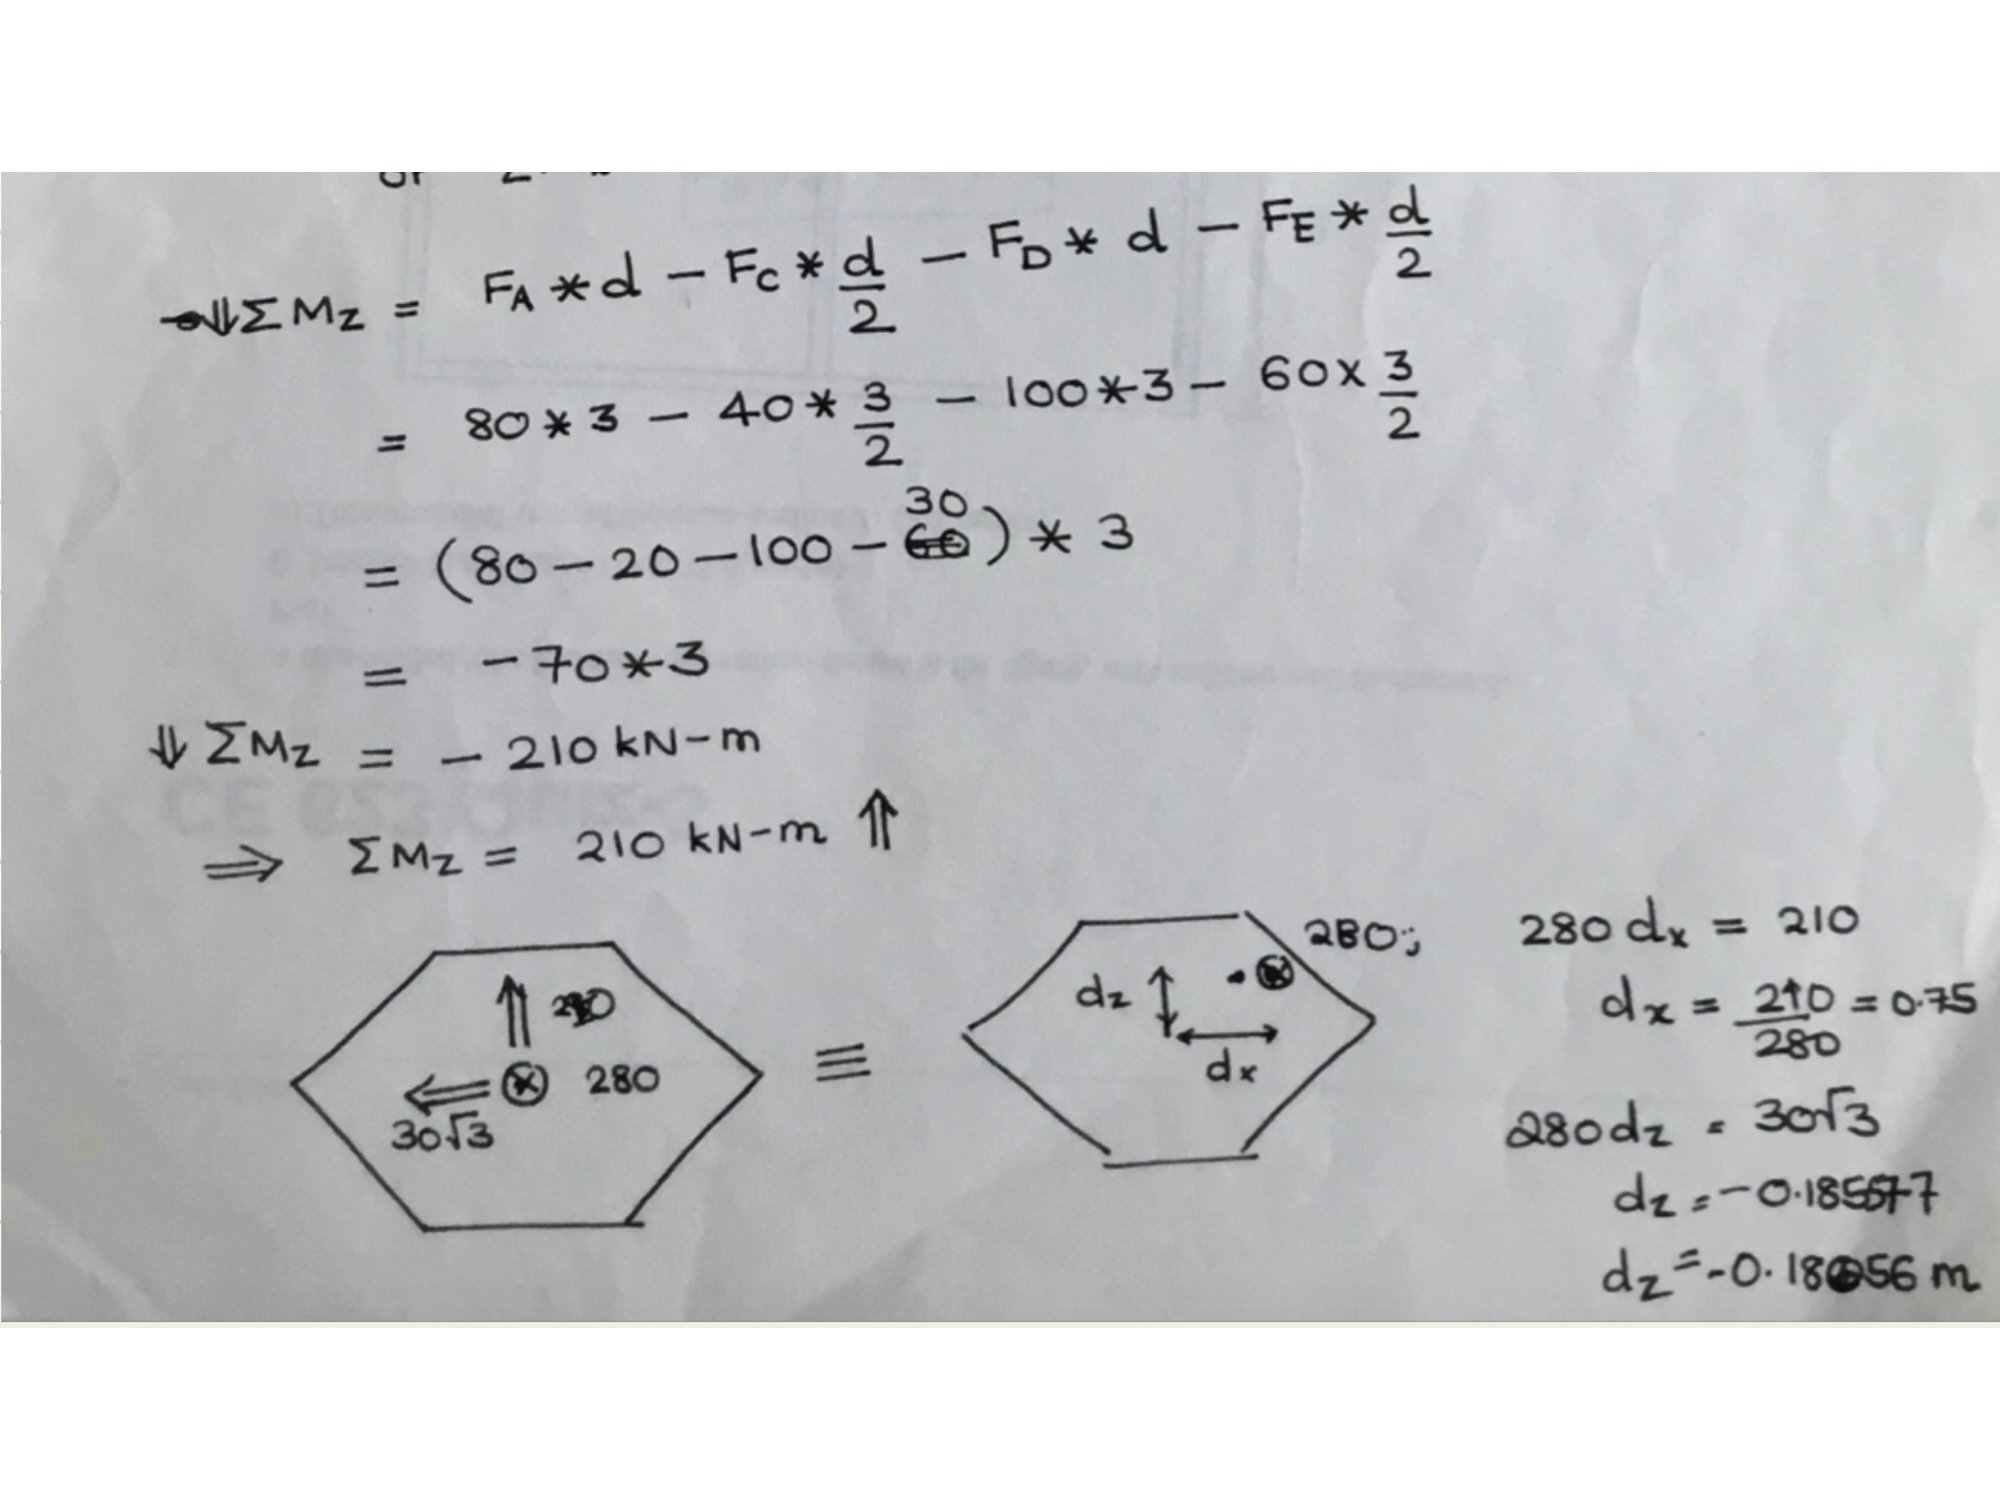 ↓ΣMz = FA * d - FC * d/2 - FD * d - FE * d/2
= 80 * 3 - 40 * 3/2 - 100 * 3 - 60 x 3/2
30
= (80 - 20 - 100 - 60) * 3
= -70 * 3
⇓ ΣMz = - 210 kN-m
⇒ ΣMz = 210 kN-m ⇑
280
30√3
≡
280
dz
dx
280 dx = 210
dx = 210/280 = 0.75
280 dz = 30√3
dz = -0.18557
dz = -0.18556 m